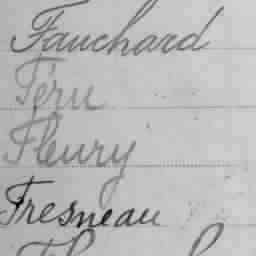 Fauchard
Féru
Fleury
Fresneau